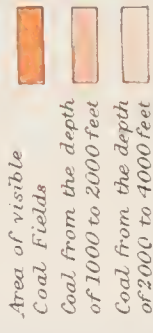 Area of visible
Coal Fields
Coal from the depth
of 1000 to 2000 feet
Coal from the depth
of 2000 to 4000 feet